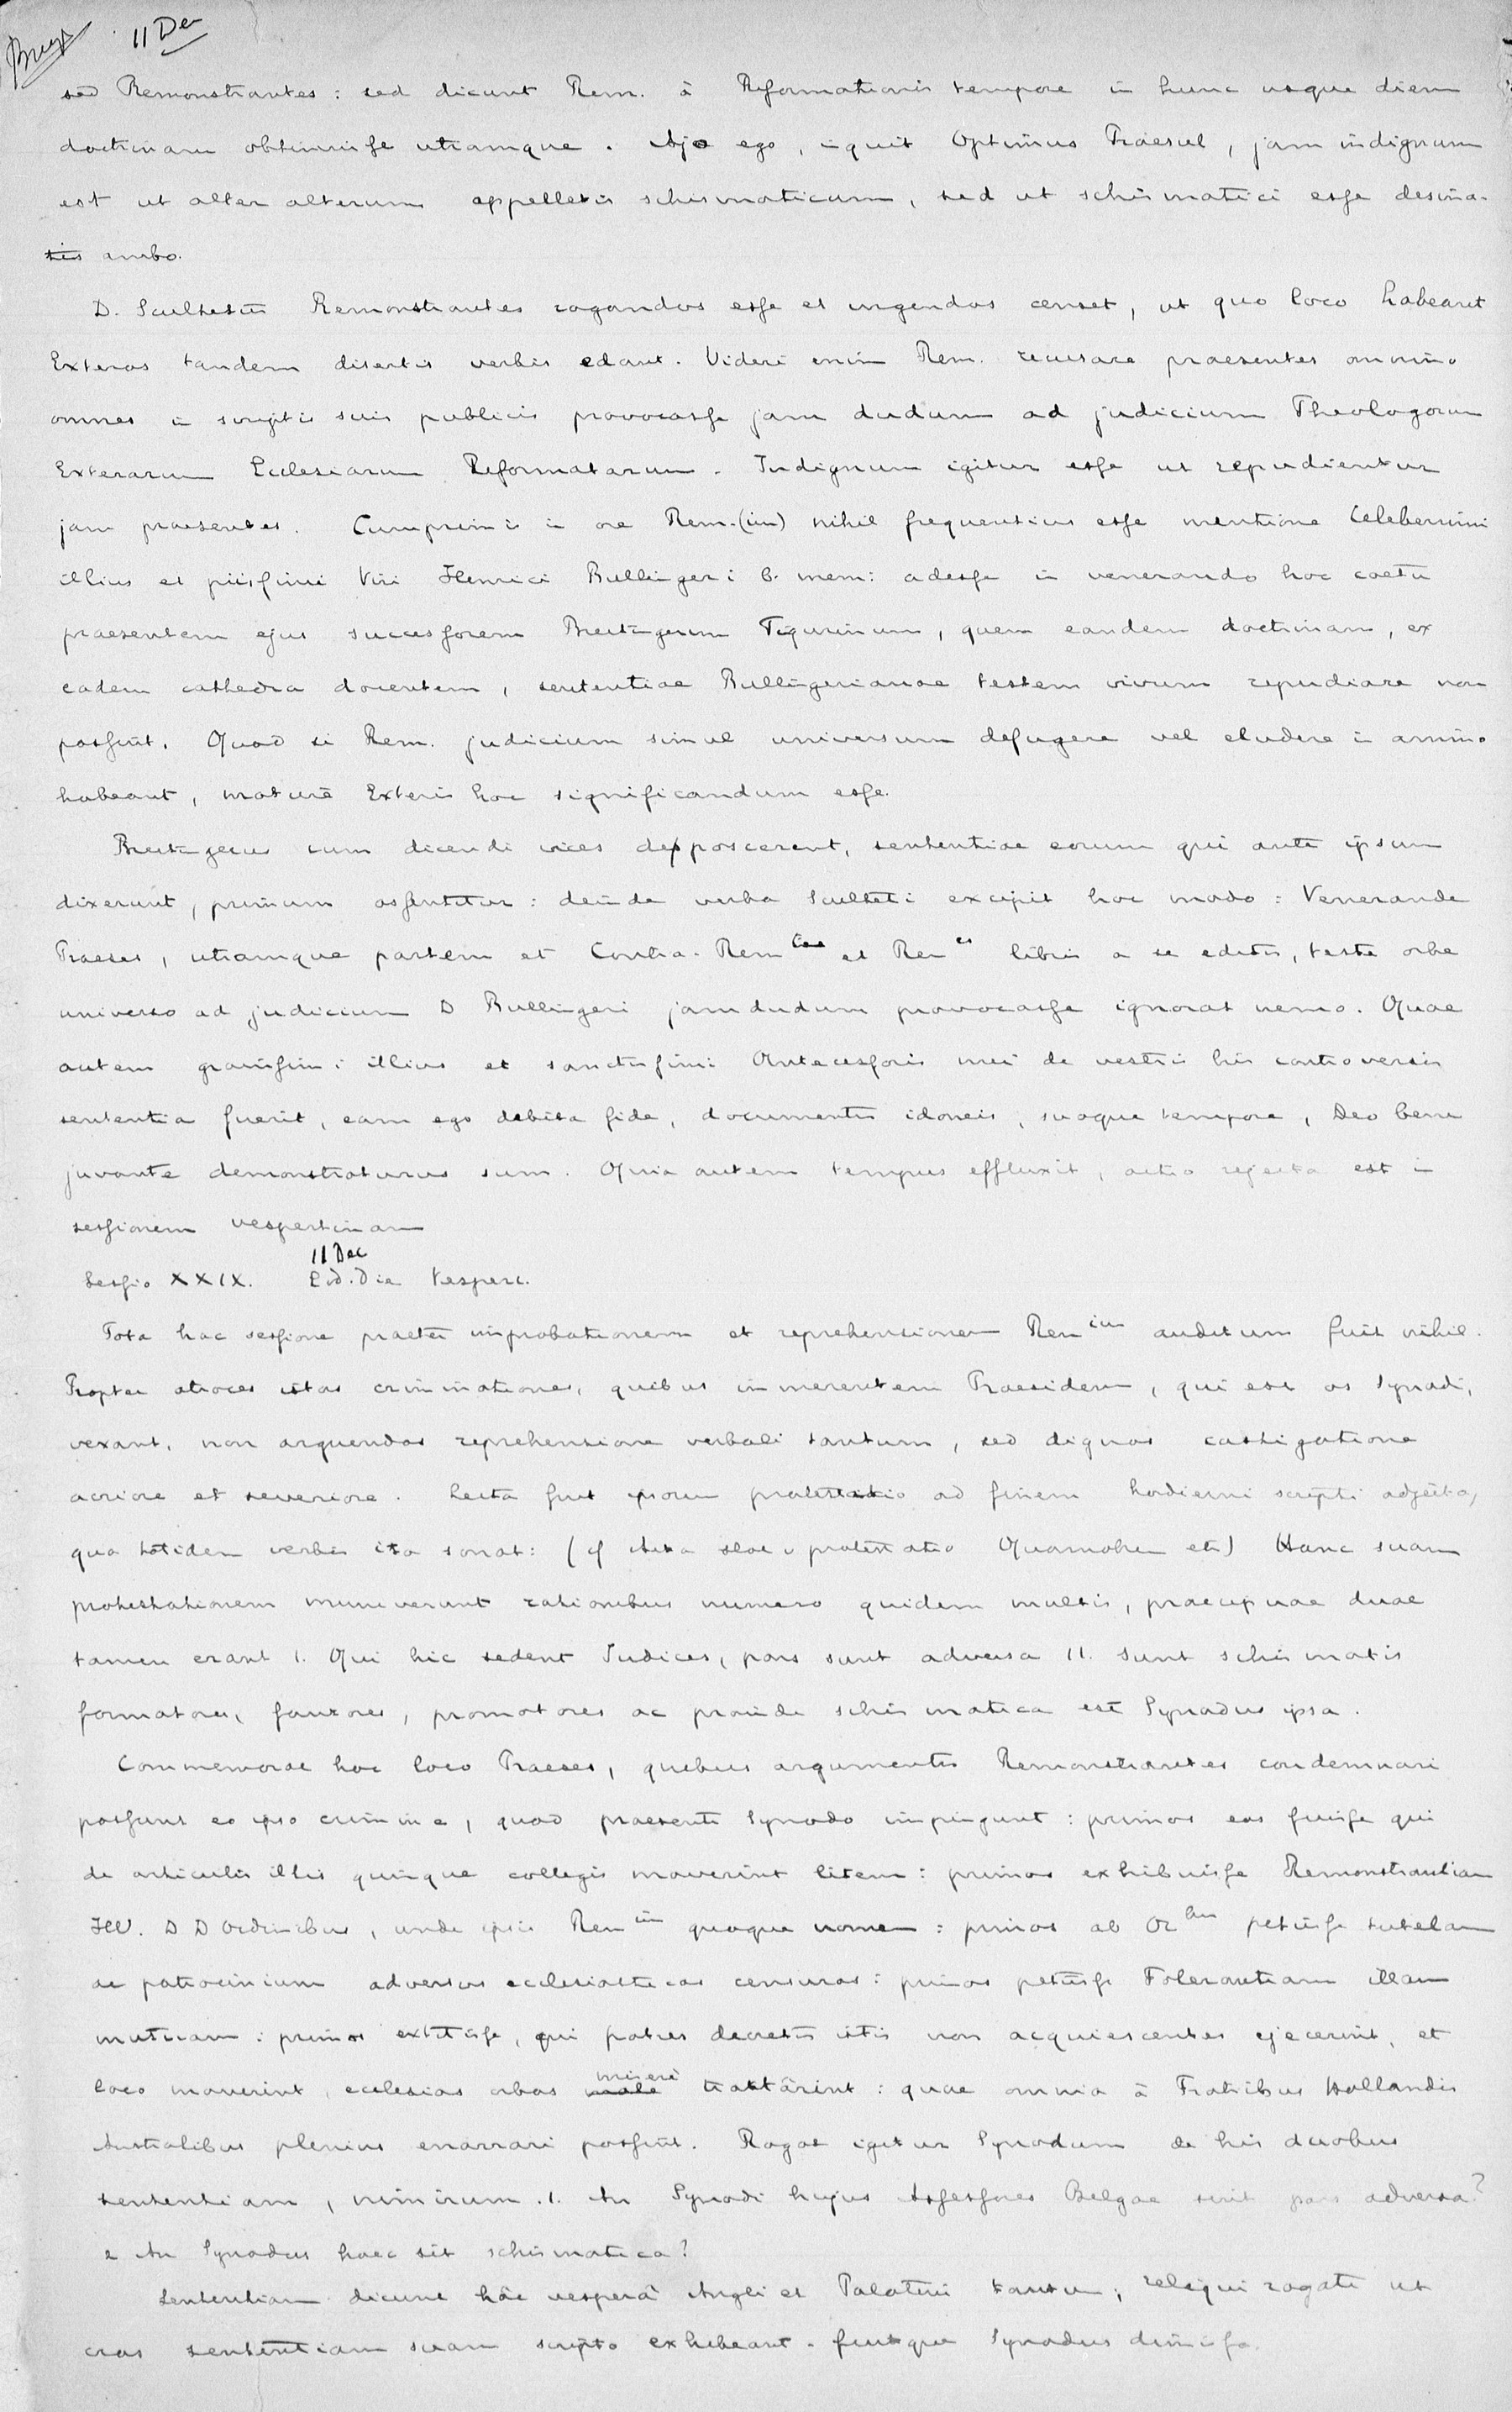 Breyt 11 Dec
sed Remonstrantes : sed dicunt Rem. à Reformationis tempore in hunc usque diem
doctrinam obtinuisse utramque . Ajo ego , inquit Optimus Praesul , jam indignum
est ut alter alterum appelletis schismaticum , sed ut schismatici esse desina-
tis ambo.
D. Scultetus Remonstrantes rogandos esse et urgendos censet , ut quo loco habeant
Exteros tandem disertis verbis edant . Videri enim Rem. recusare praesentes omnino
omnes in scriptis suis publicis provocasse jam dudum ad judicium Theologorum
Exterarum Ecclesiarum Reformatarum . Indignum igitur esse ut repudientur
jam praesentes . Cumprimis in ore Rem.(ium) nihil frequentius esse mentione Celeberrimi
illius et piissimi Viri Henrici Bullingeri b. mem: adesse in venerando hoc coetu
praesentem ejus successorem Breitingerum Tigurinum , quem eandem doctrinam , ex
eadem cathedra docentem , sententiae Bullingerianae testem vivum repudiare non
possint . Quod si Rem. judicium simul universum defugere vel eludere in animo
habeant , maturè Exteris hoc significandum esse.
Breitingerus cum dicendi vices deposcerent , sententiae eorum qui ante ipsum
dixerunt , primum assentitur : deinde verba Sculteti excipit hoc modo : Venerande
Praeses , utramque partem et Contra-Rem tes et Rem es libris a se editis , teste orbe
universo ad judicium D Bullingeri jamdudum provocasse ignorat nemo . Quae
autem gravissimi illius et sanctissimi Antecessoris mei de vestris his controversiis
sententia fuerit , eam ego debita fide , documentis idoneis , suoque tempore , Deo bene
juvante demonstraturus sum . Quia autem tempus effluxit , actio rejecta est in
sessionem vespertinam
11 Dec
Sessio XXIX. Eod. Die Vesperi.
Tota hac sessione praeter improbationem et reprehensionem Rem ium auditum fuit nihil .
Propter atroces istas criminationes , quibus immerentem Praesidem , qui est os Synodi ,
vexant , non arguendos reprehensione verbali tantum , sed dignos castigatione
acriore et severiore . Lecta fuit ipsorum protestatio ad finem hodierni scripti adjecta ,
qua totidem verbis ita sonat : ( cf Acta protestatio Quamobrem etc ) Hanc suam
protestationem muniverunt rationibus numero quidem multis , praecipuae duae
tamen erant I. Qui hic sedent Judices , pars sunt adversa II. Sunt schismatis
formatores , fautores , promotores ac proinde schismatica est Synodus ipsa .
Commemorat hoc loco Praeses , quibus argumentis Remonstrantes condemnari
possunt eo ipso crimine , quod praesenti Synodo impingunt : primos eos fuisse qui
de articulis illis quinque collegis moverint litem : primos exhibuisse Remonstrantiam
Ill. D D Ordinibus , unde ipsis Rem ium quoque nomen : primos ab Or bus petiisse tutelam
ac patrocinium adversus ecclesiasticas censuras : primos petiisse Tolerantiam illam
mutuam : primos extitisse , qui fratres decretis istis non acquiescentes ejecerint , et
loco moverint , ecclesias orbas male miserè tractârint : quae omnia à Fratribus Hollandis
Australibus plenius enarrari possint . Rogat igitur Synodum de his duobus
sententiam , nimirum . 1. An Synodi hujus Assessores Belgae sint pars adversa ?
2 An Synodus haec sit schismatica ?
Sententiam dicunt hâc vesperâ Angli et Palatini tantum ; reliqui rogati ut
cras sententiam suam scripto exhibeant . fuitque Synodus dimissa .